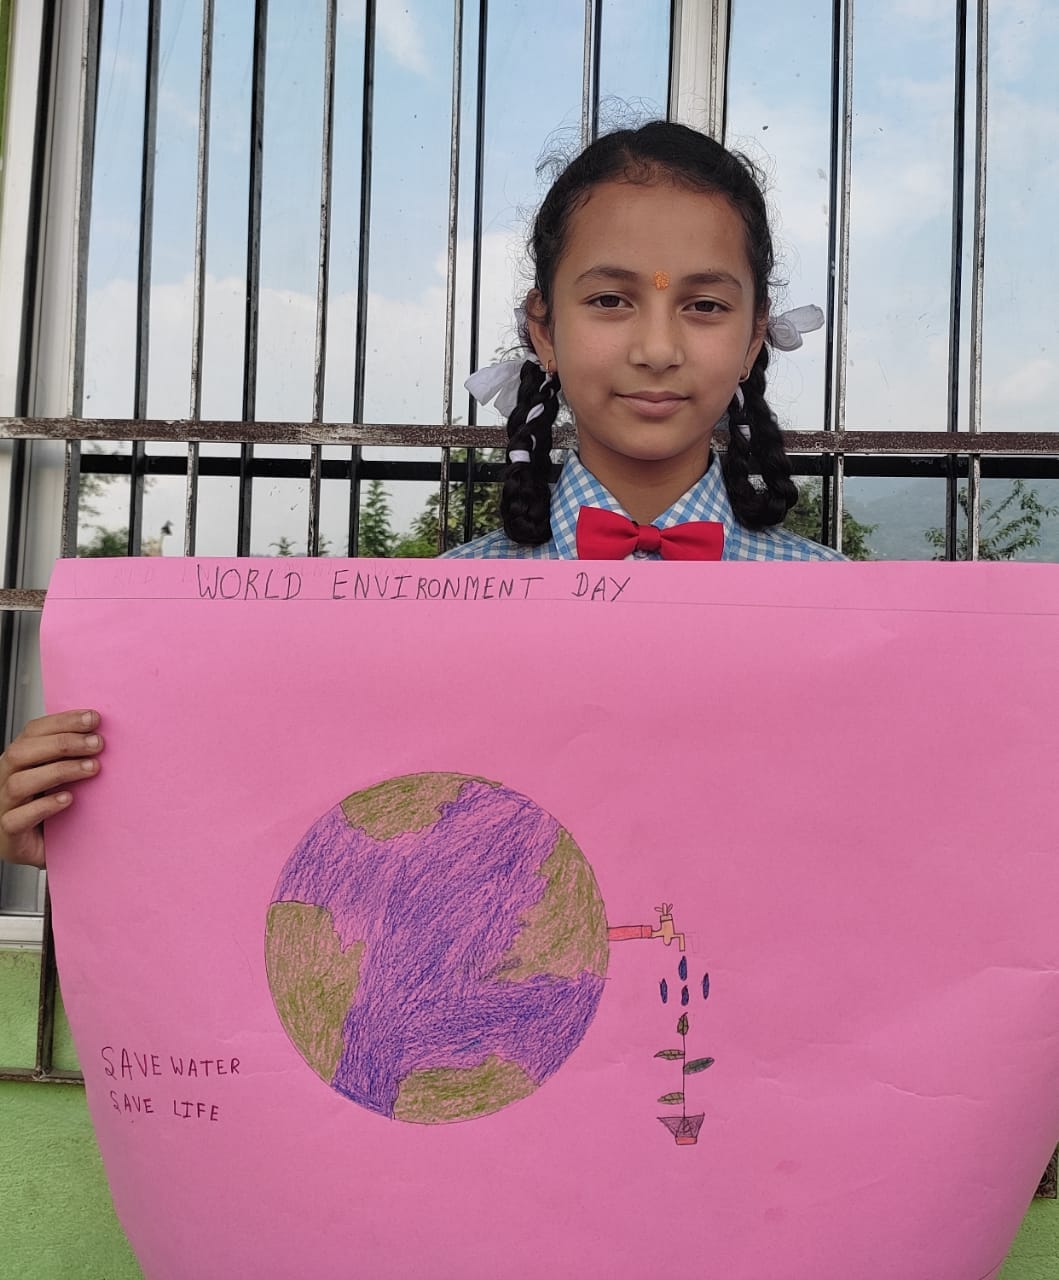 WORLD ENVIRONMENT DAY
SAVE WATER
SAVE LIFE